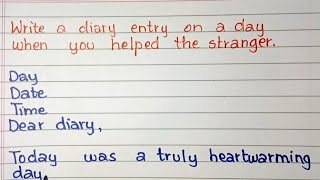 Write a diary entry on a day
when you helped the stranger.
Day
Date
Time
Dear diary,
Today was a truly heartwarming
day.